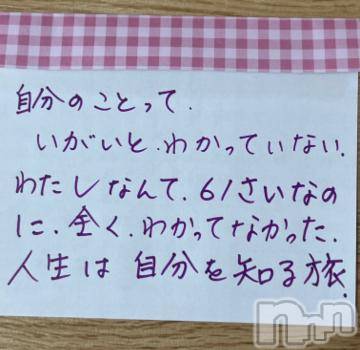 自分のことって.
いがいと.わかっていない.
わたしなんて.61さいなの
に.全く.わかってなかった.
人生は 自分を知る旅.